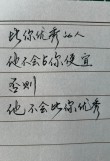 比你优秀的人
他不会占你便宜
否则
他不会比你优秀